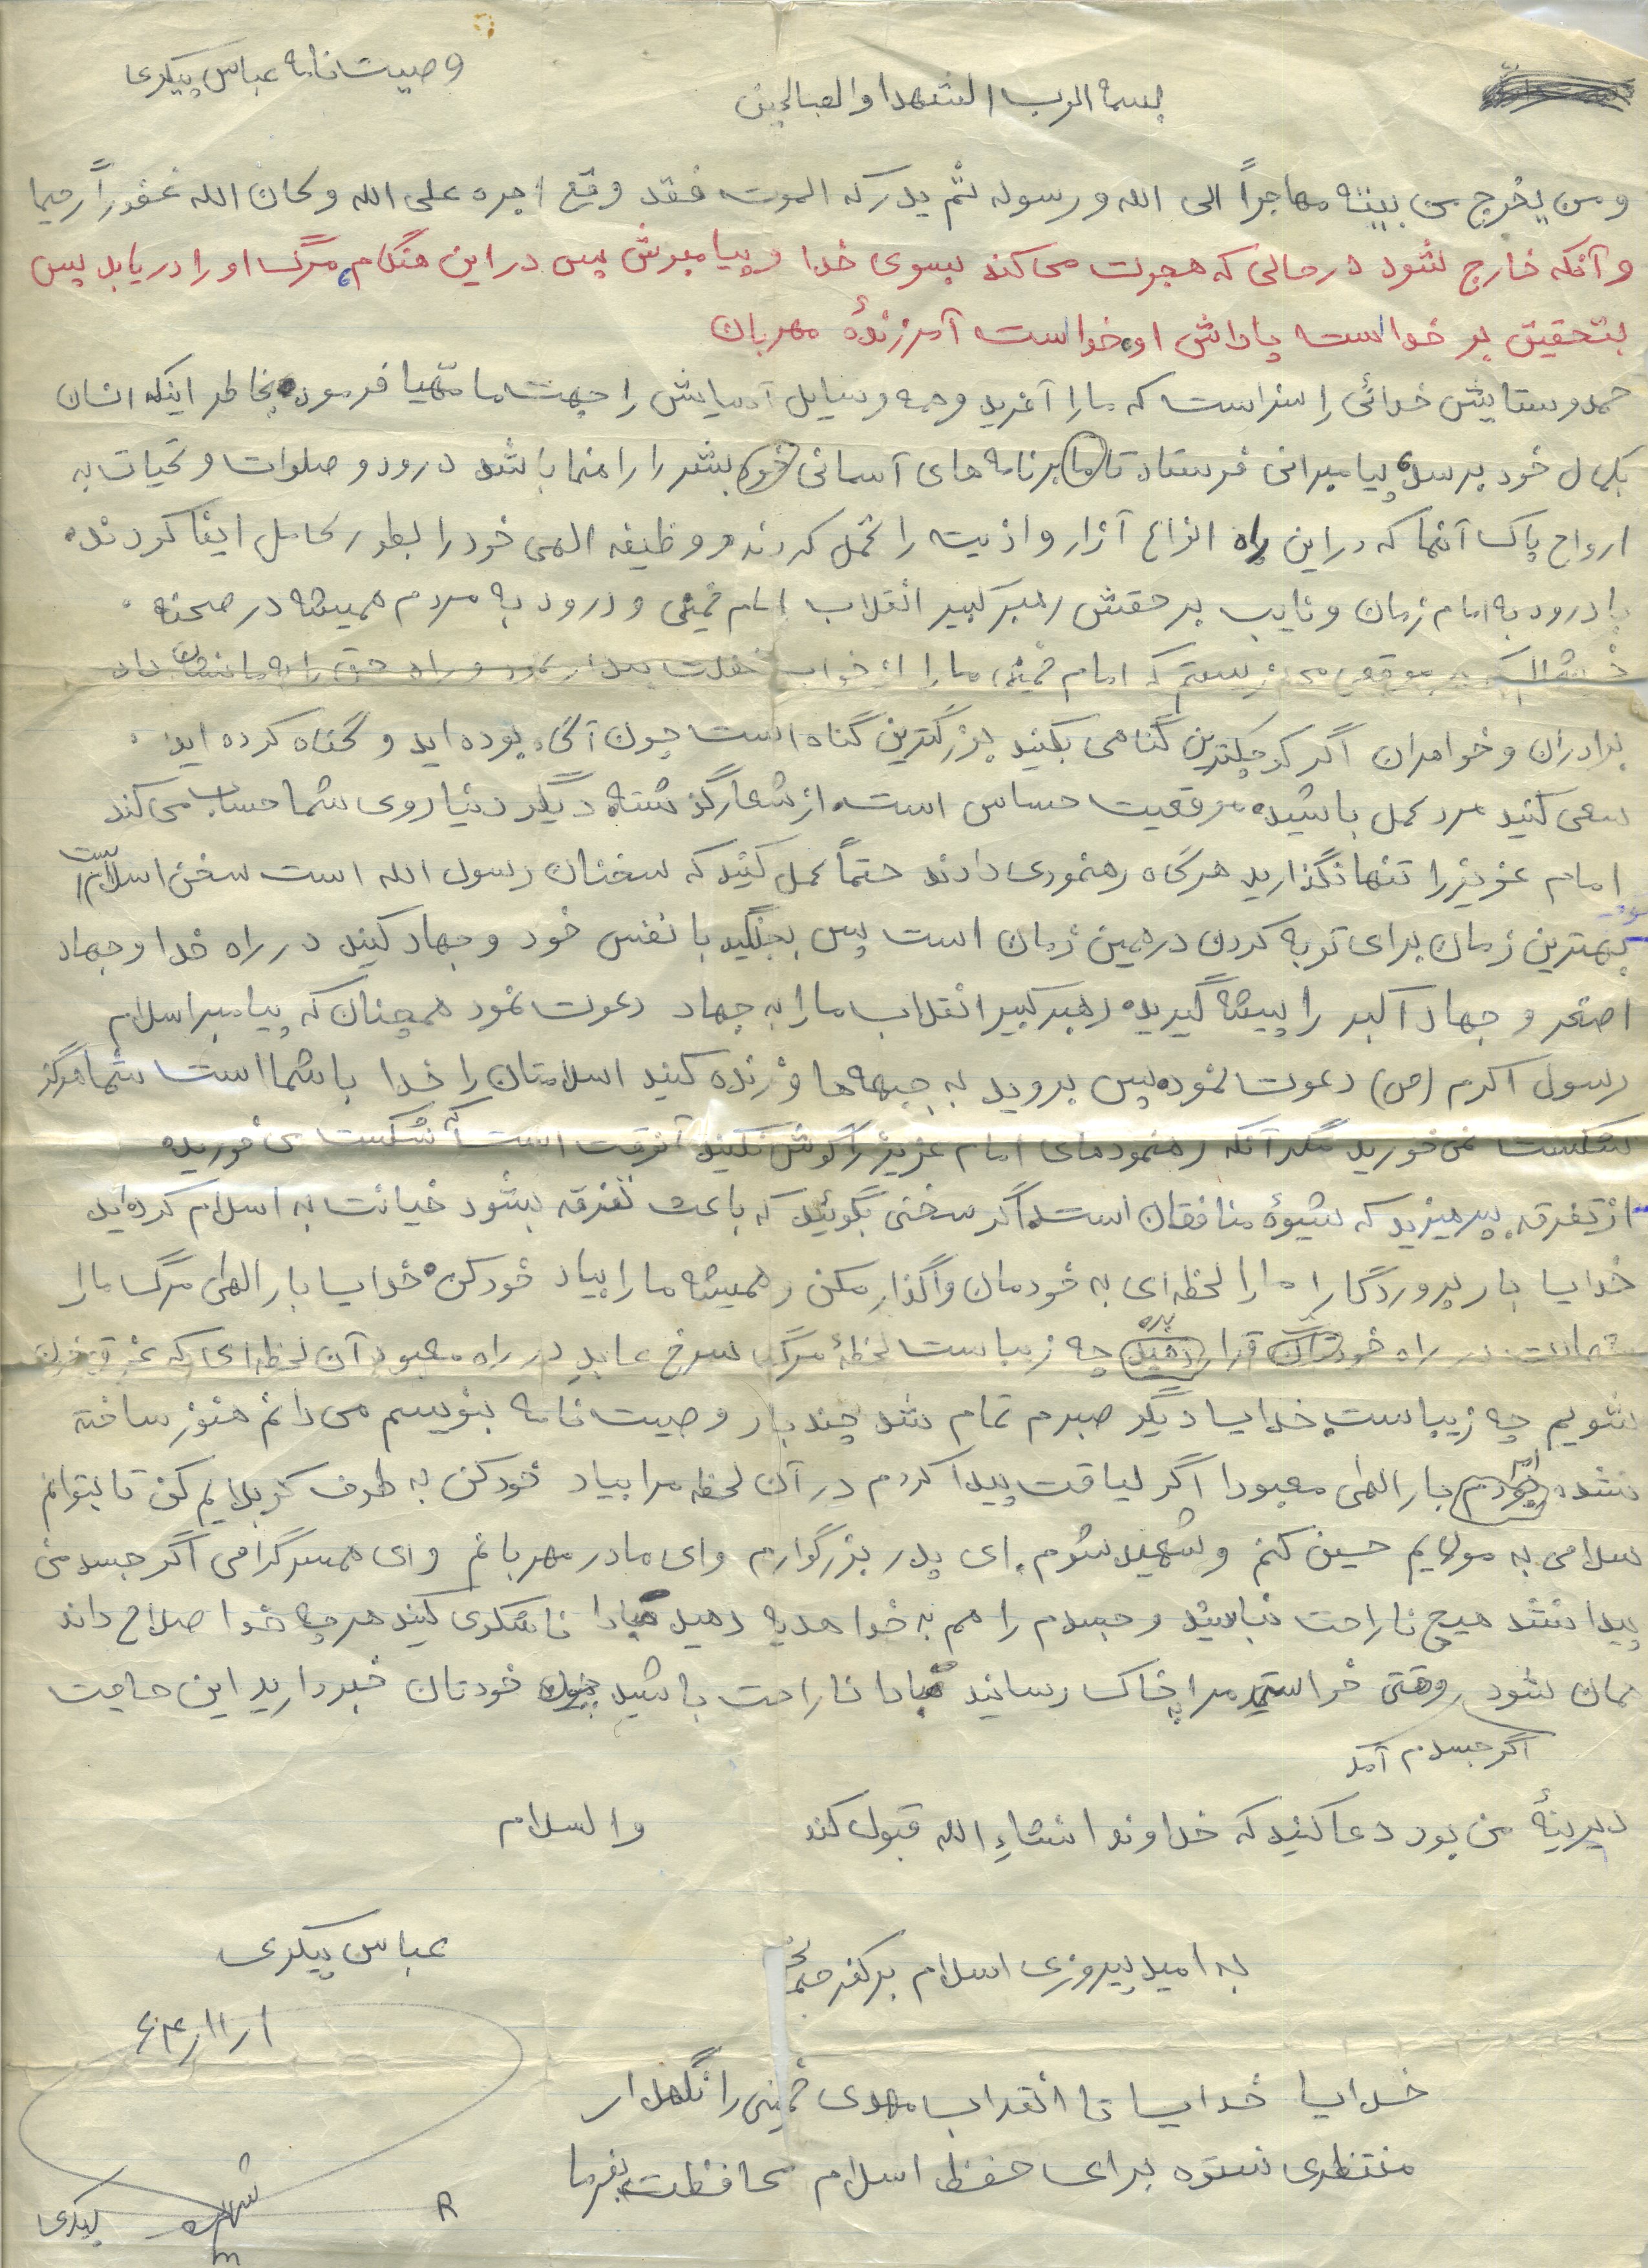 وصیت نامه عباس پیکری
بسمه الرب الشهدا والصالحین
ومن یخرج من بیته مهاجراً الی الله و رسوله ثم یدرکه الموت فقد وقع اجره علی الله وکان الله غفوراً رحیما
و آنکه خارج شود در حالی که هجرت می کند بسوی خدا و پیامبرش پس در این هنگام مرگ او را دریابد پس
بتحقیق بر خداست پاداش او خداست آمرزندهٔ مهربان
حمد و ستایش خدائی را سزاست که ما را آفرید و همه وسایل آسایش را جهت ما مهیا فرمود بخاطر اینکه انسان
بکمال خود برسد پیامبرانی فرستاد تا با برنامه های آسمانی خود بشر را راهنما باشد درود و صلوات و تحیات به
ارواح پاک آنها که در این راه انواع آزار و اذیت را تحمل کردند و وظیفه الهی خود را بطور کامل ایفا کردند
با درود به امام زمان و نایب بر حقش رهبر کبیر انقلاب امام خمینی و درود به مردم همیشه در صحنه
موقعی می زیستم که امام خمینی ما را از خواب غفلت بیدار نمود و راه حق را به ما نشان داد
برادران و خواهران اگر کوچکترین گناهی بکنید بزرگترین گناه است چون آگاه بوده اید و گناه کرده اید
سعی کنید مرد عمل باشید موقعیت حساس است از شعار گذشته دیگر دنیا روی شما حساب می کند
امام عزیز را تنها نگذارید هرگاه رهنمودی دادند حتماً عمل کنید که سخنان رسول الله است سخن اسلام است
بهترین زمان برای توبه کردن در همین زمان است پس بجنگید با نفس خود و جهاد کنید در راه خدا و جهاد
اصغر و جهاد اکبر را پیشه گیرید رهبر کبیر انقلاب ما را به جهاد دعوت نمود همچنان که پیامبر اسلام
رسول اکرم (ص) دعوت نمود پس بروید به جبهه ها و زنده کنید اسلامتان را خدا با شما است شما هرگز
شکست نمی خورید مگر آنکه رهنمودهای امام عزیز را گوش نکنید آنوقت است که شکست می خورید
از تفرقه بپرهیزید که شیوهٔ منافقان است اگر سخنی بگوئید که باعث تفرقه بشود خیانت به اسلام کرده اید
خدایا بار پروردگارا ما را لحظه ای به خودمان واگذار مکن و همیشه ما را بیاد خود کن خدایا بار الهی مرگ ما را
شهادت در راه خودتان قرار دهید بده چه زیباست لحظهٔ مرگ سرخ عابد در راه معبود آن لحظه ای که غرق خون
شویم چه زیباست خدایا دیگر صبرم تمام شد چند بار وصیت نامه بنویسم می دانم هنوز ساخته
نشده بودم ام بار الهی معبودا اگر لیاقت پیدا کردم در آن لحظه مرا بیاد خود کن به طرف کربلایم کن تا بتوانم
سلامی به مولایم حسین کنم و شهید شوم. ای پدر بزرگوارم و ای مادر مهربانم و ای همسر گرامی اگر جسد من
پیدا نشد هیچ ناراحت نباشید و جسدم را هم به خدا هدیه دهید مبادا ناشکری کنید هر چه خدا صلاح داند
همان شود وقتی خواستید مرا بخاک رسانید مبادا ناراحت باشید چون خودتان خبر دارید این حاجت
اگر جسدم آمد
دیرینهٔ من بود دعا کنید که خداوند انشاءالله قبول کند والسلام
به امید پیروزی اسلام بر کفر جهانی
عباس پیکری
۶۴ر۱۱ر۱
خدایا خدایا تا انقلاب مهدی خمینی را نگهدار
منتظری نستوه برای حفظ اسلام محافظت بفرما
شهید پیکری
R
m